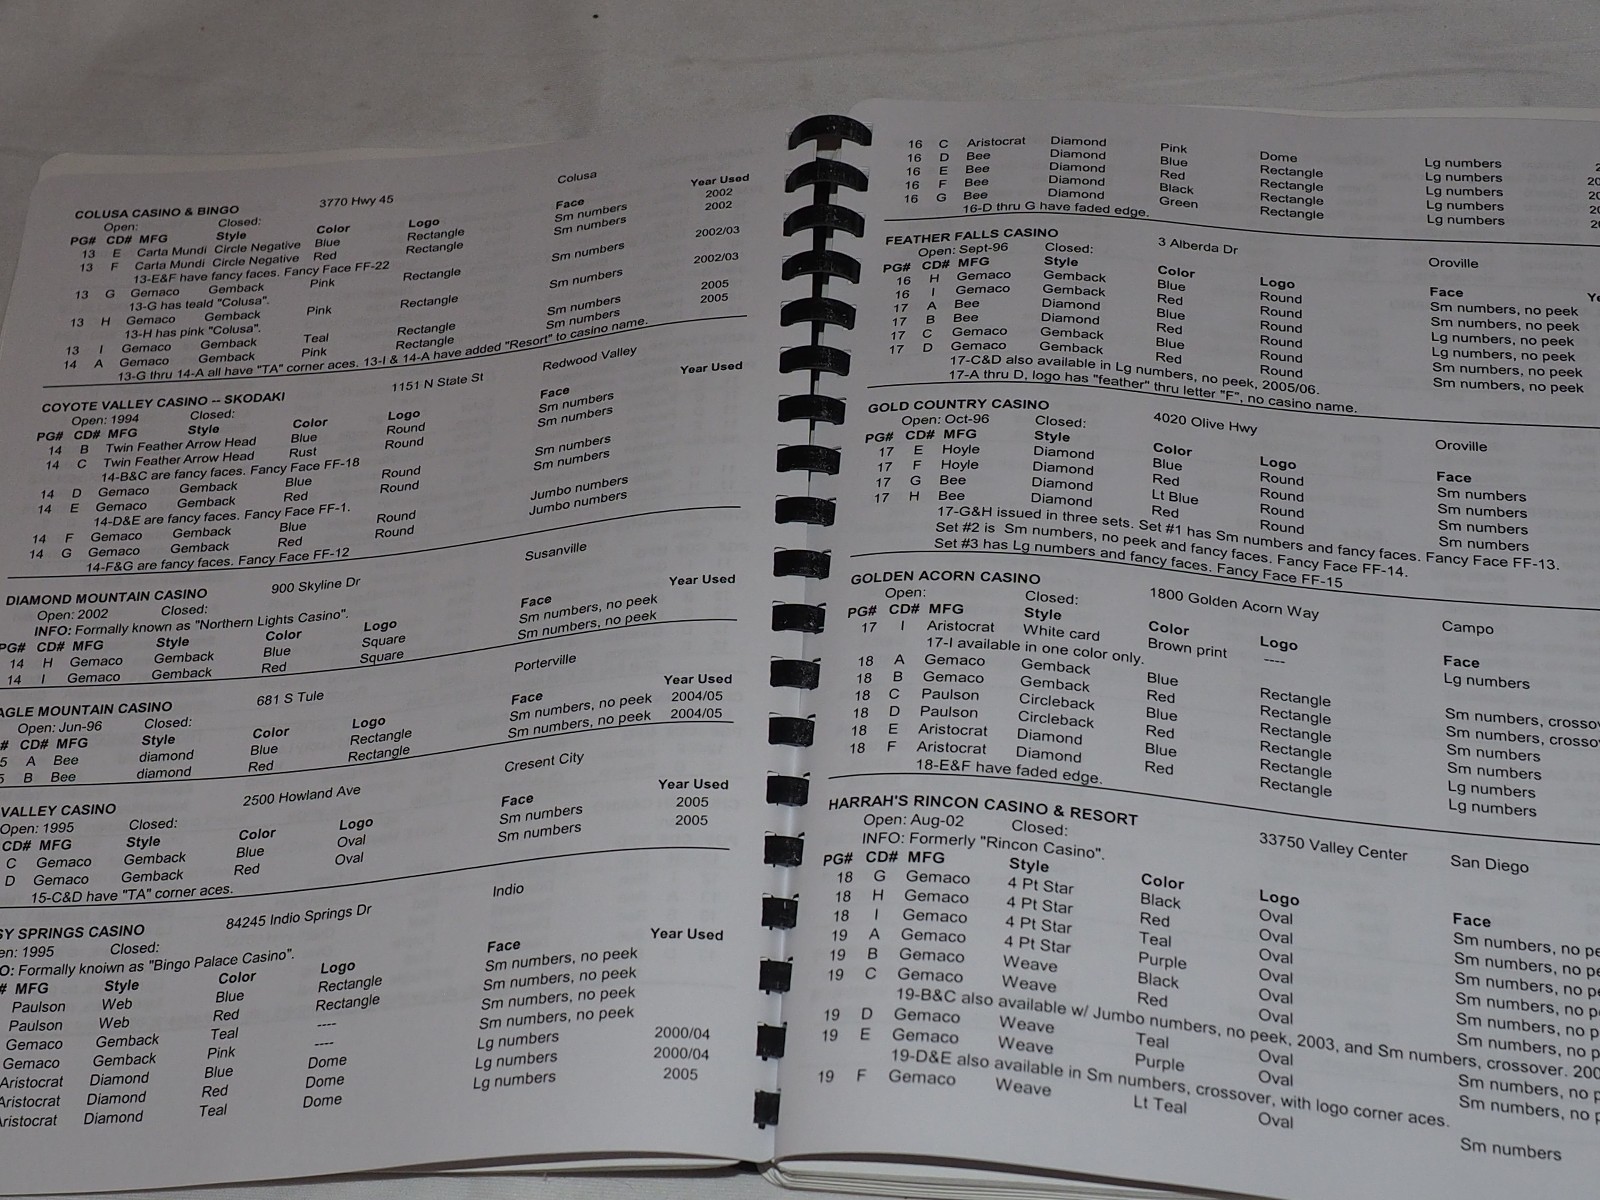 COLUSA CASINO & BINGO 3770 Hwy 45 Colusa
Open: Closed:
PG# CD# MFG Style Color Logo Face Year Used
13 E Carta Mundi Circle Negative Blue Rectangle Sm numbers 2002
13 F Carta Mundi Circle Negative Red Rectangle Sm numbers 2002
13-E&F have fancy faces. Fancy Face FF-22
13 G Gemaco Gemback Pink Rectangle Sm numbers 2002/03
13-G has teald "Colusa".
13 H Gemaco Gemback Pink Rectangle Sm numbers 2002/03
13-H has pink "Colusa".
13 I Gemaco Gemback Teal Rectangle Sm numbers 2005
14 A Gemaco Gemback Pink Rectangle Sm numbers 2005
13-G thru 14-A all have "TA" corner aces. 13-I & 14-A have added "Resort" to casino name.
COYOTE VALLEY CASINO -- SKODAKI 1151 N State St Redwood Valley
Open: 1994 Closed:
PG# CD# MFG Style Color Logo Face Year Used
14 B Twin Feather Arrow Head Blue Round Sm numbers
14 C Twin Feather Arrow Head Rust Round Sm numbers
14-B&C are fancy faces. Fancy Face FF-18
14 D Gemaco Gemback Blue Round Sm numbers
14 E Gemaco Gemback Red Round Sm numbers
14-D&E are fancy faces. Fancy Face FF-1.
14 F Gemaco Gemback Blue Round Jumbo numbers
14 G Gemaco Gemback Red Round Jumbo numbers
14-F&G are fancy faces. Fancy Face FF-12
DIAMOND MOUNTAIN CASINO 900 Skyline Dr Susanville
Open: 2002 Closed:
INFO: Formally known as "Northern Lights Casino".
PG# CD# MFG Style Color Logo Face Year Used
14 H Gemaco Gemback Blue Square Sm numbers, no peek
14 I Gemaco Gemback Red Square Sm numbers, no peek
AGLE MOUNTAIN CASINO 681 S Tule Porterville
Open: Jun-96 Closed:
# CD# MFG Style Color Logo Face Year Used
5 A Bee diamond Blue Rectangle Sm numbers, no peek 2004/05
5 B Bee diamond Red Rectangle Sm numbers, no peek 2004/05
VALLEY CASINO 2500 Howland Ave Cresent City
Open: 1995 Closed:
CD# MFG Style Color Logo Face Year Used
C Gemaco Gemback Blue Oval Sm numbers 2005
D Gemaco Gemback Red Oval Sm numbers 2005
15-C&D have "TA" corner aces.
SY SPRINGS CASINO 84245 Indio Springs Dr Indio
en: 1995 Closed:
O: Formally knoiwn as "Bingo Palace Casino".
# MFG Style Color Logo Face Year Used
Paulson Web Blue Rectangle Sm numbers, no peek
Paulson Web Red Rectangle Sm numbers, no peek
Gemaco Gemback Teal ---- Sm numbers, no peek
Gemaco Gemback Pink ---- Sm numbers, no peek
Aristocrat Diamond Blue Dome Lg numbers 2000/04
Aristocrat Diamond Red Dome Lg numbers 2000/04
Aristocrat Diamond Teal Dome Lg numbers 2005
16 C Aristocrat Diamond Pink Dome Lg numbers 2
16 D Bee Diamond Blue Rectangle Lg numbers 20
16 E Bee Diamond Red Rectangle Lg numbers 20
16 F Bee Diamond Black Rectangle Lg numbers 20
16 G Bee Diamond Green Rectangle Lg numbers 20
16-D thru G have faded edge.
FEATHER FALLS CASINO 3 Alberda Dr Oroville
Open: Sept-96 Closed:
PG# CD# MFG Style Color Logo Face Ye
16 H Gemaco Gemback Blue Round Sm numbers, no peek
16 I Gemaco Gemback Red Round Sm numbers, no peek
17 A Bee Diamond Blue Round Lg numbers, no peek
17 B Bee Diamond Red Round Lg numbers, no peek
17 C Gemaco Gemback Blue Round Sm numbers, no peek
17 D Gemaco Gemback Red Round Sm numbers, no peek
17-C&D also available in Lg numbers, no peek, 2005/06.
17-A thru D, logo has "feather" thru letter "F", no casino name.
GOLD COUNTRY CASINO 4020 Olive Hwy Oroville
Open: Oct-96 Closed:
PG# CD# MFG Style Color Logo Face
17 E Hoyle Diamond Blue Round Sm numbers
17 F Hoyle Diamond Red Round Sm numbers
17 G Bee Diamond Lt Blue Round Sm numbers
17 H Bee Diamond Red Round Sm numbers
17-G&H issued in three sets. Set #1 has Sm numbers and fancy faces. Fancy Face FF-13.
Set #2 is Sm numbers, no peek and fancy faces. Fancy Face FF-14.
Set #3 has Lg numbers and fancy faces. Fancy Face FF-15
GOLDEN ACORN CASINO 1800 Golden Acorn Way Campo
Open: Closed:
PG# CD# MFG Style Color Logo Face
17 I Aristocrat White card Brown print ---- Lg numbers
17-I available in one color only.
18 A Gemaco Gemback Blue Rectangle Sm numbers, crosso
18 B Gemaco Gemback Red Rectangle Sm numbers, crosso
18 C Paulson Circleback Blue Rectangle Sm numbers
18 D Paulson Circleback Red Rectangle Sm numbers
18 E Aristocrat Diamond Blue Rectangle Lg numbers
18 F Aristocrat Diamond Red Rectangle Lg numbers
18-E&F have faded edge.
HARRAH'S RINCON CASINO & RESORT 33750 Valley Center San Diego
Open: Aug-02 Closed:
INFO: Formerly "Rincon Casino".
PG# CD# MFG Style Color Logo Face
18 G Gemaco 4 Pt Star Black Oval Sm numbers, no pe
18 H Gemaco 4 Pt Star Red Oval Sm numbers, no pe
18 I Gemaco 4 Pt Star Teal Oval Sm numbers, no p
19 A Gemaco 4 Pt Star Purple Oval Sm numbers, no p
19 B Gemaco Weave Black Oval Sm numbers, no p
19 C Gemaco Weave Red Oval Sm numbers, no p
19-B&C also available w/ Jumbo numbers, no peek, 2003, and Sm numbers, crossover. 200
19 D Gemaco Weave Teal Oval Sm numbers, no p
19 E Gemaco Weave Purple Oval Sm numbers, no p
19-D&E also available in Sm numbers, crossover, with logo corner aces.
19 F Gemaco Weave Lt Teal Oval Sm numbers